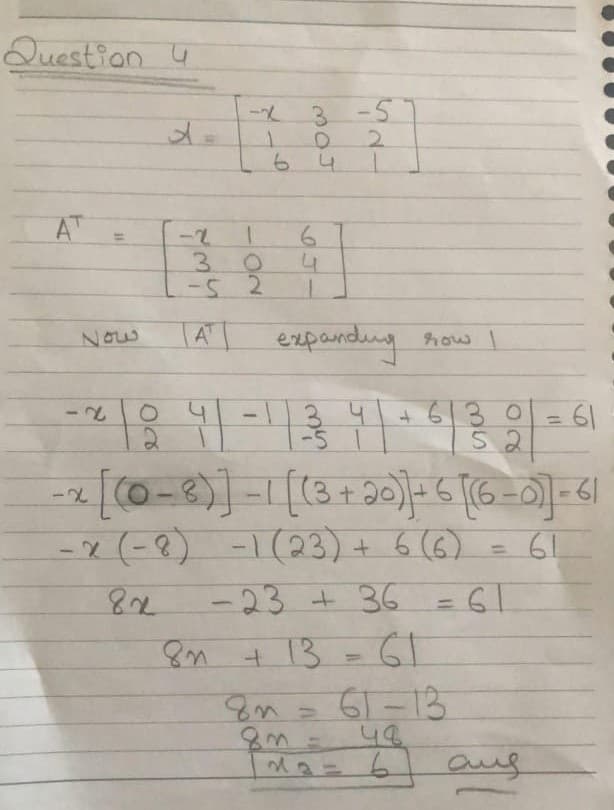 Question 4
A = [ -x 3 -5
1 0 2
6 4 1 ]
A^T = [ -x 1 6
3 0 4
-5 2 1 ]
Now |A^T| expanding row 1
-x | 0 4 | - 1 | 3 4 | + 6 | 3 0 | = 61
| 2 1 | | -5 1 | | 5 2 |
-x [(0-8)] -1 [(3+20)] + 6 [(6-0)] = 61
-x (-8) -1 (23) + 6 (6) = 61
8x - 23 + 36 = 61
8x + 13 = 61
8x = 61 - 13
8x = 48
x = 6 ans